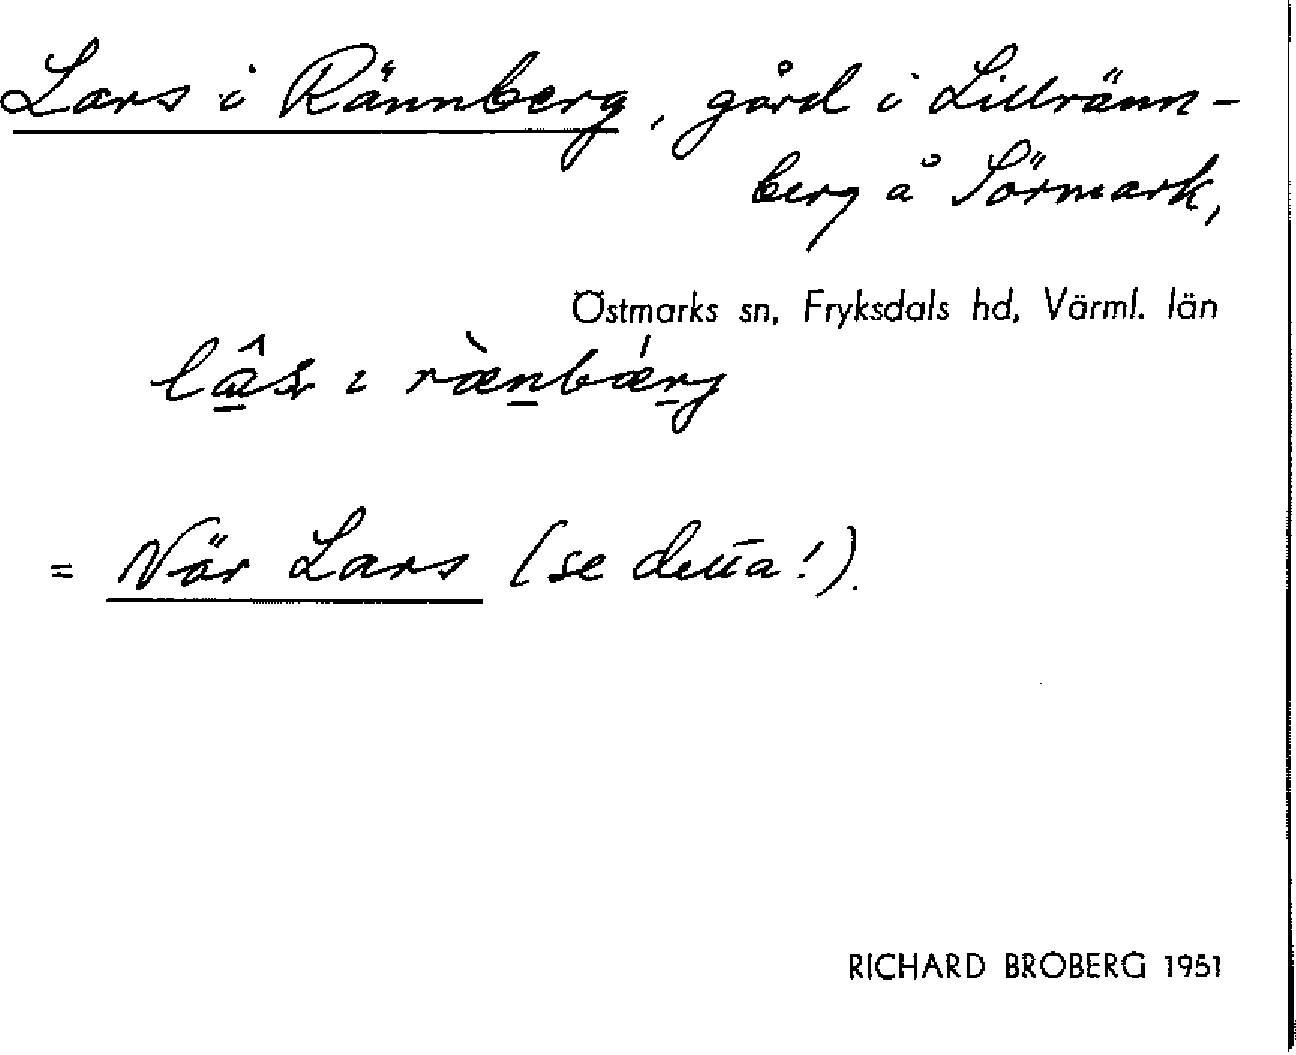 Lars i Rännberg, gård i Lillränn-
berg å Sörmark,
Östmarks sn, Fryksdals hd, Värml. län
= När Lars (se detta!).
RICHARD BROBERG 1951